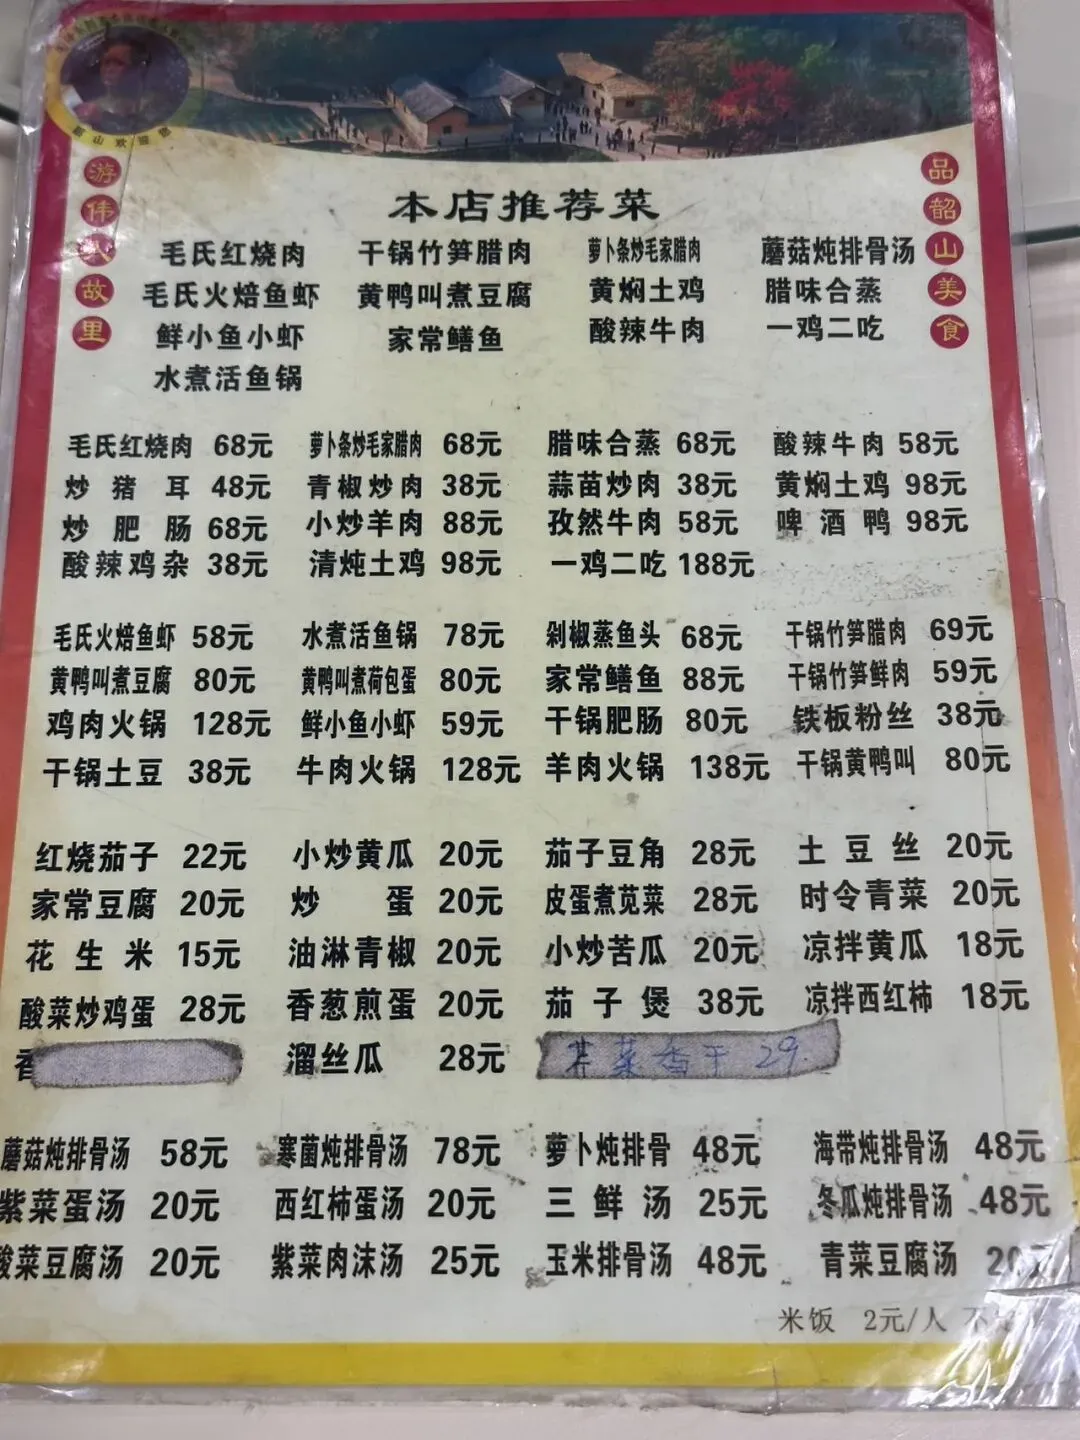 韶山欢迎您
游伟人故里
品韶山美食
本店推荐菜
毛氏红烧肉 干锅竹笋腊肉 萝卜条炒毛家腊肉 蘑菇炖排骨汤
毛氏火焙鱼虾 黄鸭叫煮豆腐 黄焖土鸡 腊味合蒸
鲜小鱼小虾 家常鳝鱼 酸辣牛肉 一鸡二吃
水煮活鱼锅
毛氏红烧肉 68元 萝卜条炒毛家腊肉 68元 腊味合蒸 68元 酸辣牛肉 58元
炒猪耳 48元 青椒炒肉 38元 蒜苗炒肉 38元 黄焖土鸡 98元
炒肥肠 68元 小炒羊肉 88元 孜然牛肉 58元 啤酒鸭 98元
酸辣鸡杂 38元 清炖土鸡 98元 一鸡二吃 188元
毛氏火焙鱼虾 58元 水煮活鱼锅 78元 剁椒蒸鱼头 68元 干锅竹笋腊肉 69元
黄鸭叫煮豆腐 80元 黄鸭叫煮荷包蛋 80元 家常鳝鱼 88元 干锅竹笋鲜肉 59元
鸡肉火锅 128元 鲜小鱼小虾 59元 干锅肥肠 80元 铁板粉丝 38元
干锅土豆 38元 牛肉火锅 128元 羊肉火锅 138元 干锅黄鸭叫 80元
红烧茄子 22元 小炒黄瓜 20元 茄子豆角 28元 土豆丝 20元
家常豆腐 20元 炒蛋 20元 皮蛋煮苋菜 28元 时令青菜 20元
花生米 15元 油淋青椒 20元 小炒苦瓜 20元 凉拌黄瓜 18元
酸菜炒鸡蛋 28元 香葱煎蛋 20元 茄子煲 38元 凉拌西红柿 18元
香 溜丝瓜 28元 芹菜香干 29
蘑菇炖排骨汤 58元 寒菌炖排骨汤 78元 萝卜炖排骨 48元 海带炖排骨汤 48元
紫菜蛋汤 20元 西红柿蛋汤 20元 三鲜汤 25元 冬瓜炖排骨汤 48元
酸菜豆腐汤 20元 紫菜肉沫汤 25元 玉米排骨汤 48元 青菜豆腐汤 20元
米饭 2元/人 不